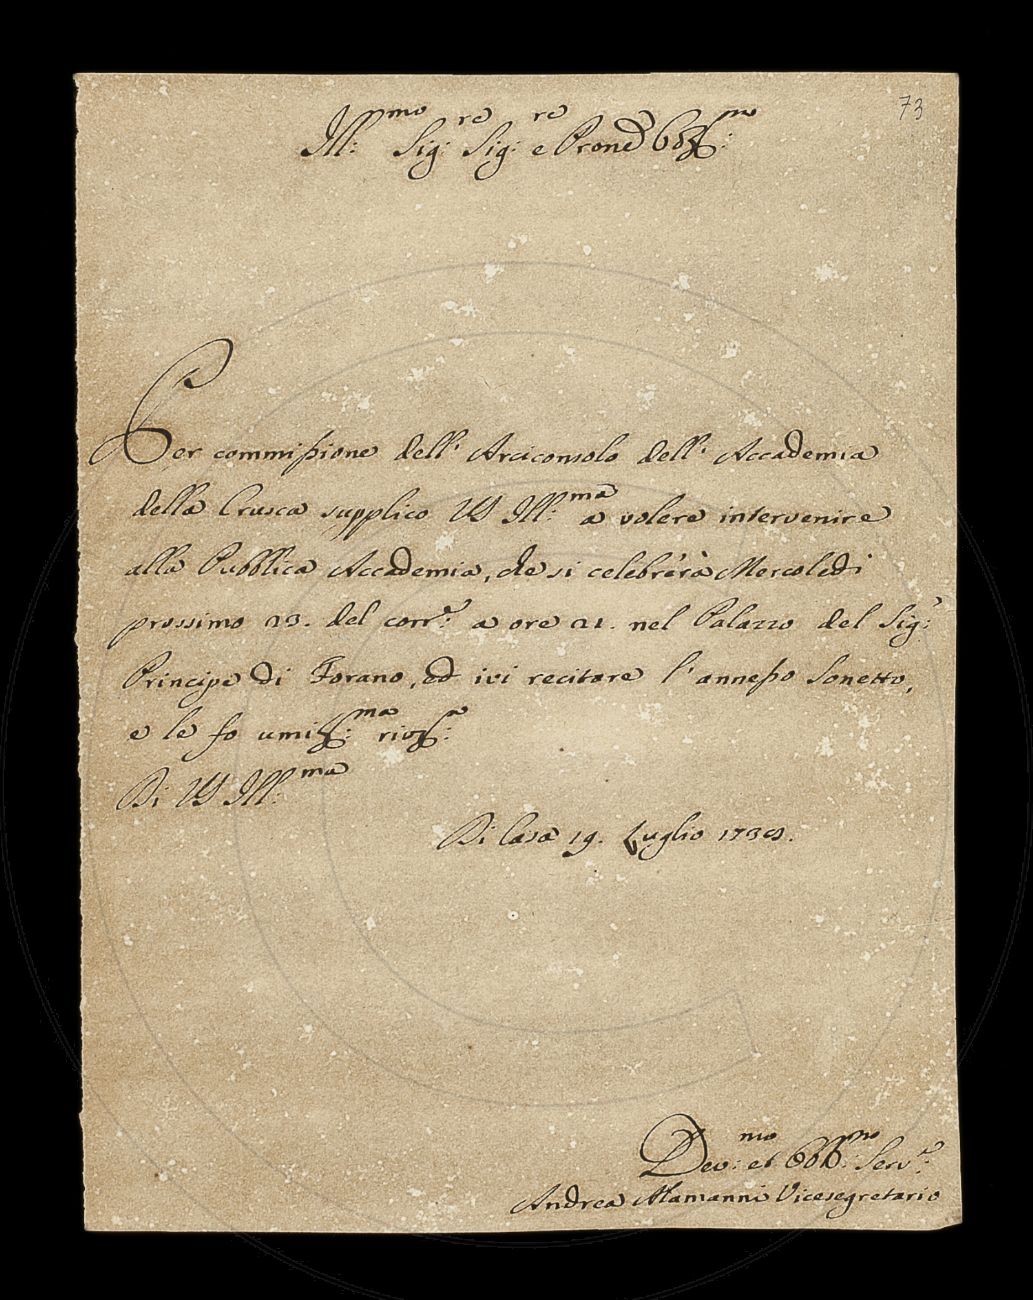 73
Ill:mo Sig:re Sig:re e Prone
Per commissione dell' Arciconsolo dell' Accademia
della Crusca supplico VS Ill:ma a volere intervenire
alla Pubblica Accademia, che si celebrerà Mercoledì
prossimo 23. del corr:e a ore 21. nel Palazzo del Sig:
Principe di Forano, ed ivi recitare l' annesso Sonetto,
e le fo umiss:ma riv:a
Di VS Ill:ma
Di Casa 19. Luglio
Dev:mo et Obb:mo Serv:e
Andrea Alamanni Vicesegretario